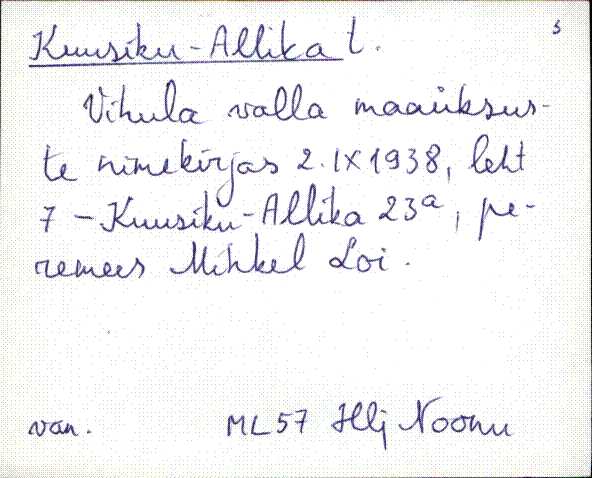 s
Kuusiku-Allika t.
Vihula valla maaüksus-
te nimekirjas 2. IX 1938, leht
7 – Kuusiku-Allika 23a, pe-
remees Mihkel Loi.
van. ML57 Hlj Noonu